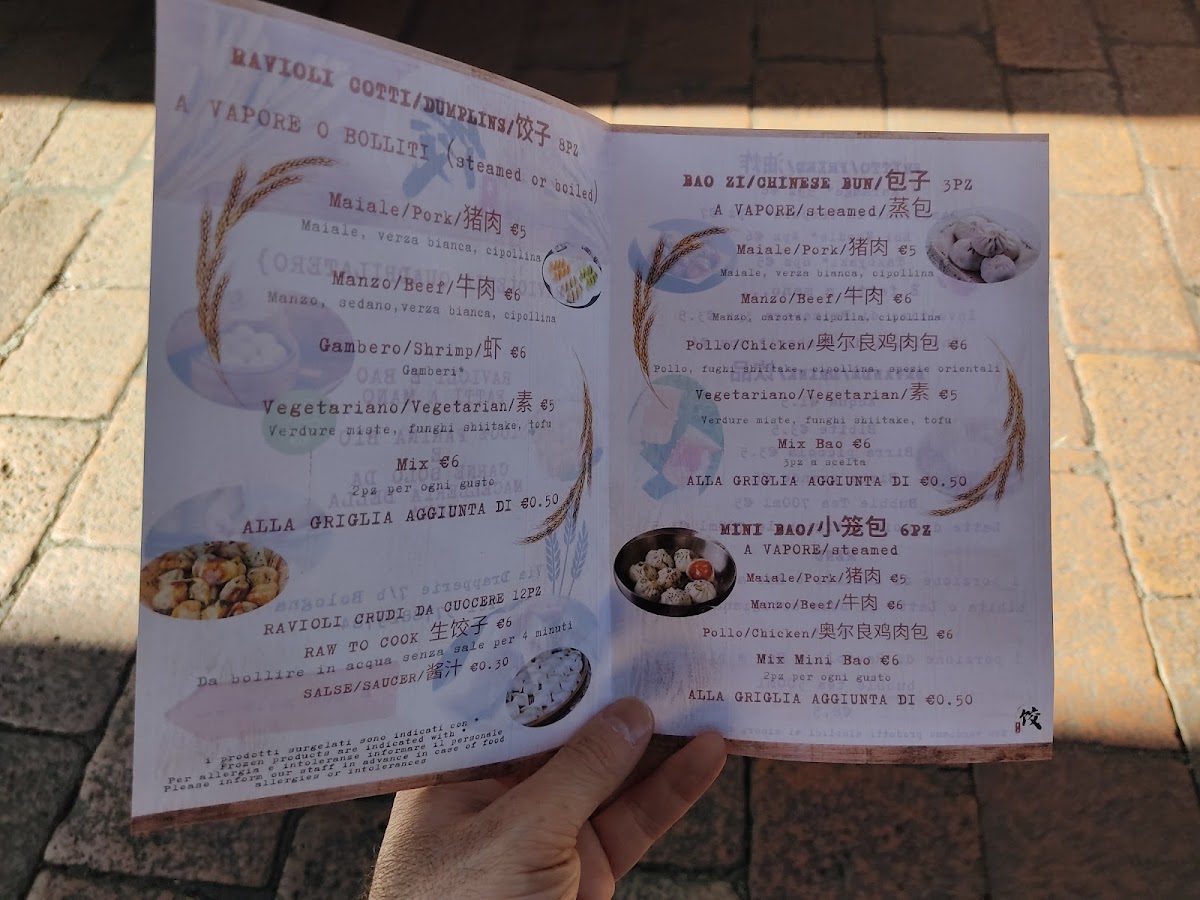 RAVIOLI COTTI/DUMPLINS/饺子 8PZ
A VAPORE O BOLLITI (steamed or boiled)
Maiale/Pork/猪肉 €5
Maiale, verza bianca, cipollina
Manzo/Beef/牛肉 €6
Manzo, sedano,verza bianca, cipollina
Gambero/Shrimp/虾 €6
Gamberi*
Vegetariano/Vegetarian/素 €5
Verdure miste, funghi shiitake, tofu
Mix €6
2pz per ogni gusto
ALLA GRIGLIA AGGIUNTA DI €0.50
RAVIOLI CRUDI DA CUOCERE 12PZ
RAW TO COOK 生饺子 €6
Da bollire in acqua senza sale per 4 minuti
SALSE/SAUCER/酱汁 €0.30
i prodotti surgelati sono indicati con *
Frozen products are indicated with *
Per allergia e intoleranze informare il personale
Please inform our staff in advance in case of food
allergies or intolerances
BAO ZI/CHINESE BUN/包子 3PZ
A VAPORE/steamed/蒸包
Maiale/Pork/猪肉 €5
Maiale, verza bianca, cipollina
Manzo/Beef/牛肉 €6
Manzo, carota, cipolla, cipollina
Pollo/Chicken/奥尔良鸡肉包 €6
Pollo, fughi shiitake, cipollina, spezie orientali
Vegetariano/Vegetarian/素 €5
Verdure miste, funghi shiitake, tofu
Mix Bao €6
3pz a scelta
ALLA GRIGLIA AGGIUNTA DI €0.50
MINI BAO/小笼包 6PZ
A VAPORE/steamed
Maiale/Pork/猪肉 €5
Manzo/Beef/牛肉 €6
Pollo/Chicken/奥尔良鸡肉包 €6
Mix Mini Bao €6
2pz per ogni gusto
ALLA GRIGLIA AGGIUNTA DI €0.50
饺